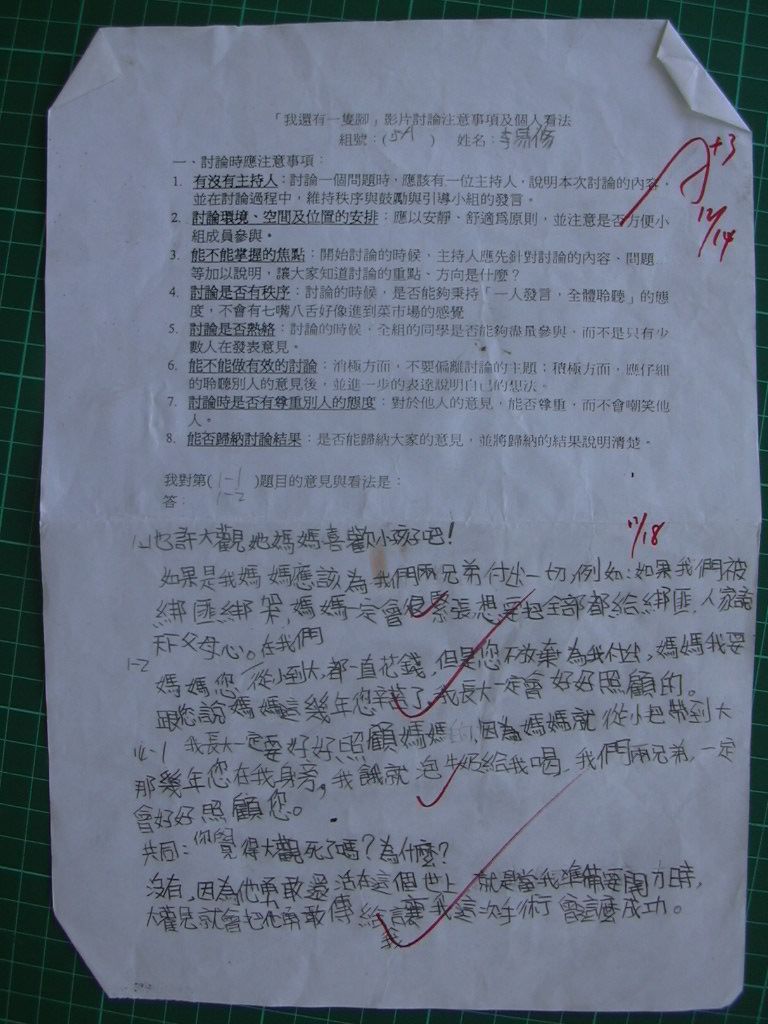 「我還有一隻腳」影片討論注意事項及個人看法
組號：(5A ) 姓名：李易修
A+3
一、討論時應注意事項：
1. 有沒有主持人：討論一個問題時，應該有一位主持人，說明本次討論的內容，
並在討論過程中，維持秩序與鼓勵與引導小組的發言。
12/14
2. 討論環境、空間及位置的安排：應以安靜、舒適為原則，並注意是否方便小
組成員參與。
3. 能不能掌握的焦點：開始討論的時候，主持人應先針對討論的內容、問題…
等加以說明，讓大家知道討論的重點、方向是什麼？
4. 討論是否有秩序：討論的時候，是否能夠秉持「一人發言，全體聆聽」的態
度，不會有七嘴八舌好像進到菜市場的感覺
5. 討論是否熱絡：討論的時候，全組的同學是否能夠盡量參與，而不是只有少
數人在發表意見。
6. 能不能做有效的討論：消極方面，不要偏離討論的主題；積極方面，應仔細
的聆聽別人的意見後，並進一步的表達說明自己的想法。
7. 討論時是否有尊重別人的態度：對於他人的意見，能否尊重，而不會嘲笑他
人。
8. 能否歸納討論結果：是否能歸納大家的意見，並將歸納的結果說明清楚。
我對第( 1-1 1-2 )題目的意見與看法是：
答：
12/18
1-1也許大觀她媽媽喜歡小孩子吧！
如果是我媽媽應該為我們兩兄弟付出一切，例如：如果我們被
綁匪綁架，媽媽一定會很緊張想要把全部都給綁匪，人家說
天下父母心。在我們
1-2 媽媽您，從小到大，都一直花錢，但是您不放棄為我付出，媽媽我要
跟您說媽媽這幾年您辛苦了，我長大一定會好好照顧的。
我長大一定要好好照顧媽媽的，因為媽媽就從小把帶到大
那幾年您在我身旁，我餓就泡牛奶給我喝，我們兩兄弟，一定
會好好照顧您。
共同：你們覺得大觀死了嗎？為什麼？
沒有，因為他勇敢還活在這個世上，就是當我準備要開刀時，
大觀兄就會把他勇敢傳給我讓我這次手術會這麼成功。